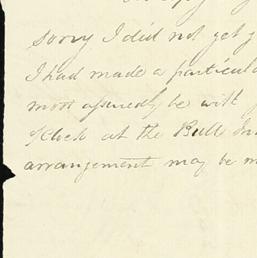 sorry I did not get y
I had made a particula
most assuredly be with
o'Clock at the Bull In
arrangement may be m